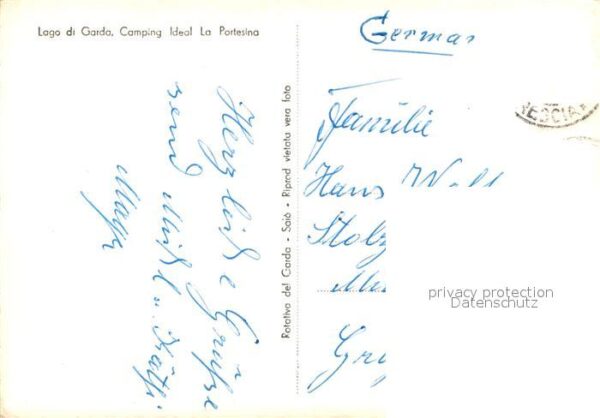 Lago di Garda, Camping Ideal La Portesina
Herzliche Grüsse
send Michl u. Käthi
Rotativa del Garda - Salò - Riprod vietata vera foto
German
Familie
Hans
Stolz
Gry
RESCIA
privacy protection
Datenschutz